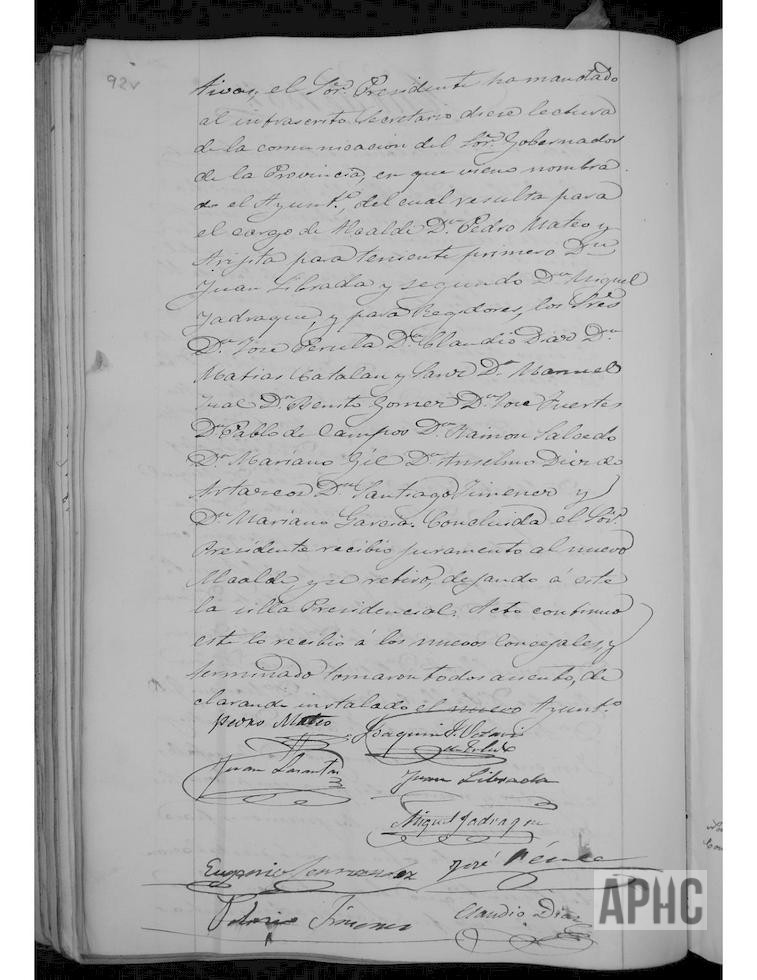 92v
tivos, el Sor. Presidente ha manotado
al infrascrito Secretario diese lectura
de la comunicacion del Sor. Gobernador
de la Provincia, en que viene nombra
do el Ayunto., del cual resulta para
el cargo de Alcalde Dn. Pedro Mateo y
Arijita para teniente primero Dn.
Juan Librada y segundo Dn. Miguel
Jadraque, y para Regidores, los Sres
Dn. Jose Perula Dn. Claudio Diaz Dn.
Matias Catalan y Sanz Dn. Manuel
Dn. Benito Gomez Dn. Jose Fuertes
Dn. Pablo de Campos Dn. Ramon Salcedo
Dn. Mariano Gil Dn. Anselmo Diez de
Artarcoz Dn. Santiago Jimenez y
Dn. Mariano Garcia. Concluida el Sor.
Presidente recibio juramento al nuevo
Alcalde y se retiro, dejando á este
la silla Presidencial. Acto continuo
este lo recibio á los nuevos Concejales, y
terminado tomaron todos asiento, de
clarando instalado el nuevo Ayunto.
Pedro Mateo
Joaquin
Juan
Juan Librada
Miguel Jadraque
Eugenio
José
Jimenez
Claudio Diaz
APHC